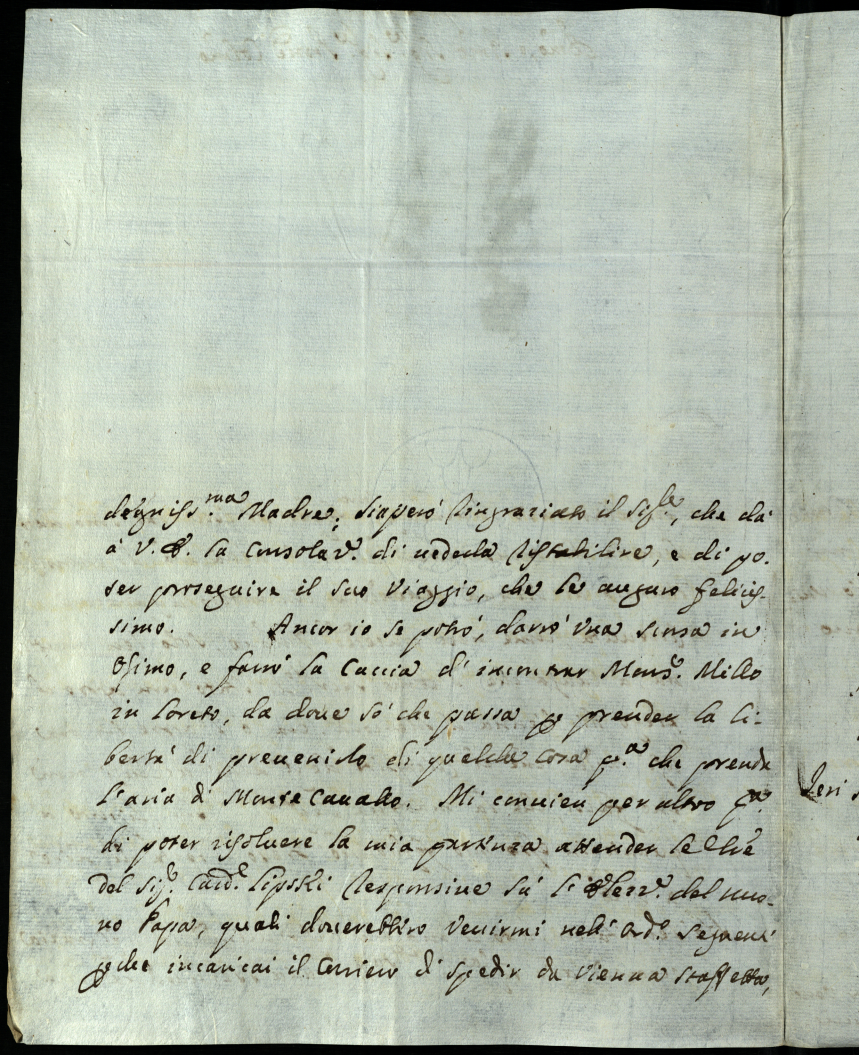 degniss.ma Madre; sia però ringraziato il Sig.re, che dà
à V. S. la Consolaz.e di vederla ristabilire, e di po-
ter proseguire il suo Viaggio, che le auguro felicis-
simo. Ancor io se potrò, darrò una scorsa in
Osimo, e farrò la Caccia d' incontrar Mons.r Millo
in Loreto, da dove sò che passa per prender la li-
bertà di prevenirlo di qualche cosa p.a che prenda
l'aria di Monte Cavallo. Mi convien per altro p.a
di poter risolvere la mia partenza attender le
del Sig.r Card.e Lipski responsive sù l' del nuo-
vo Papa, quali doverebbero venirmi nell' Ord.o
perche incaricai il Corriero di spedir da Vienna staffetta,
Ieri